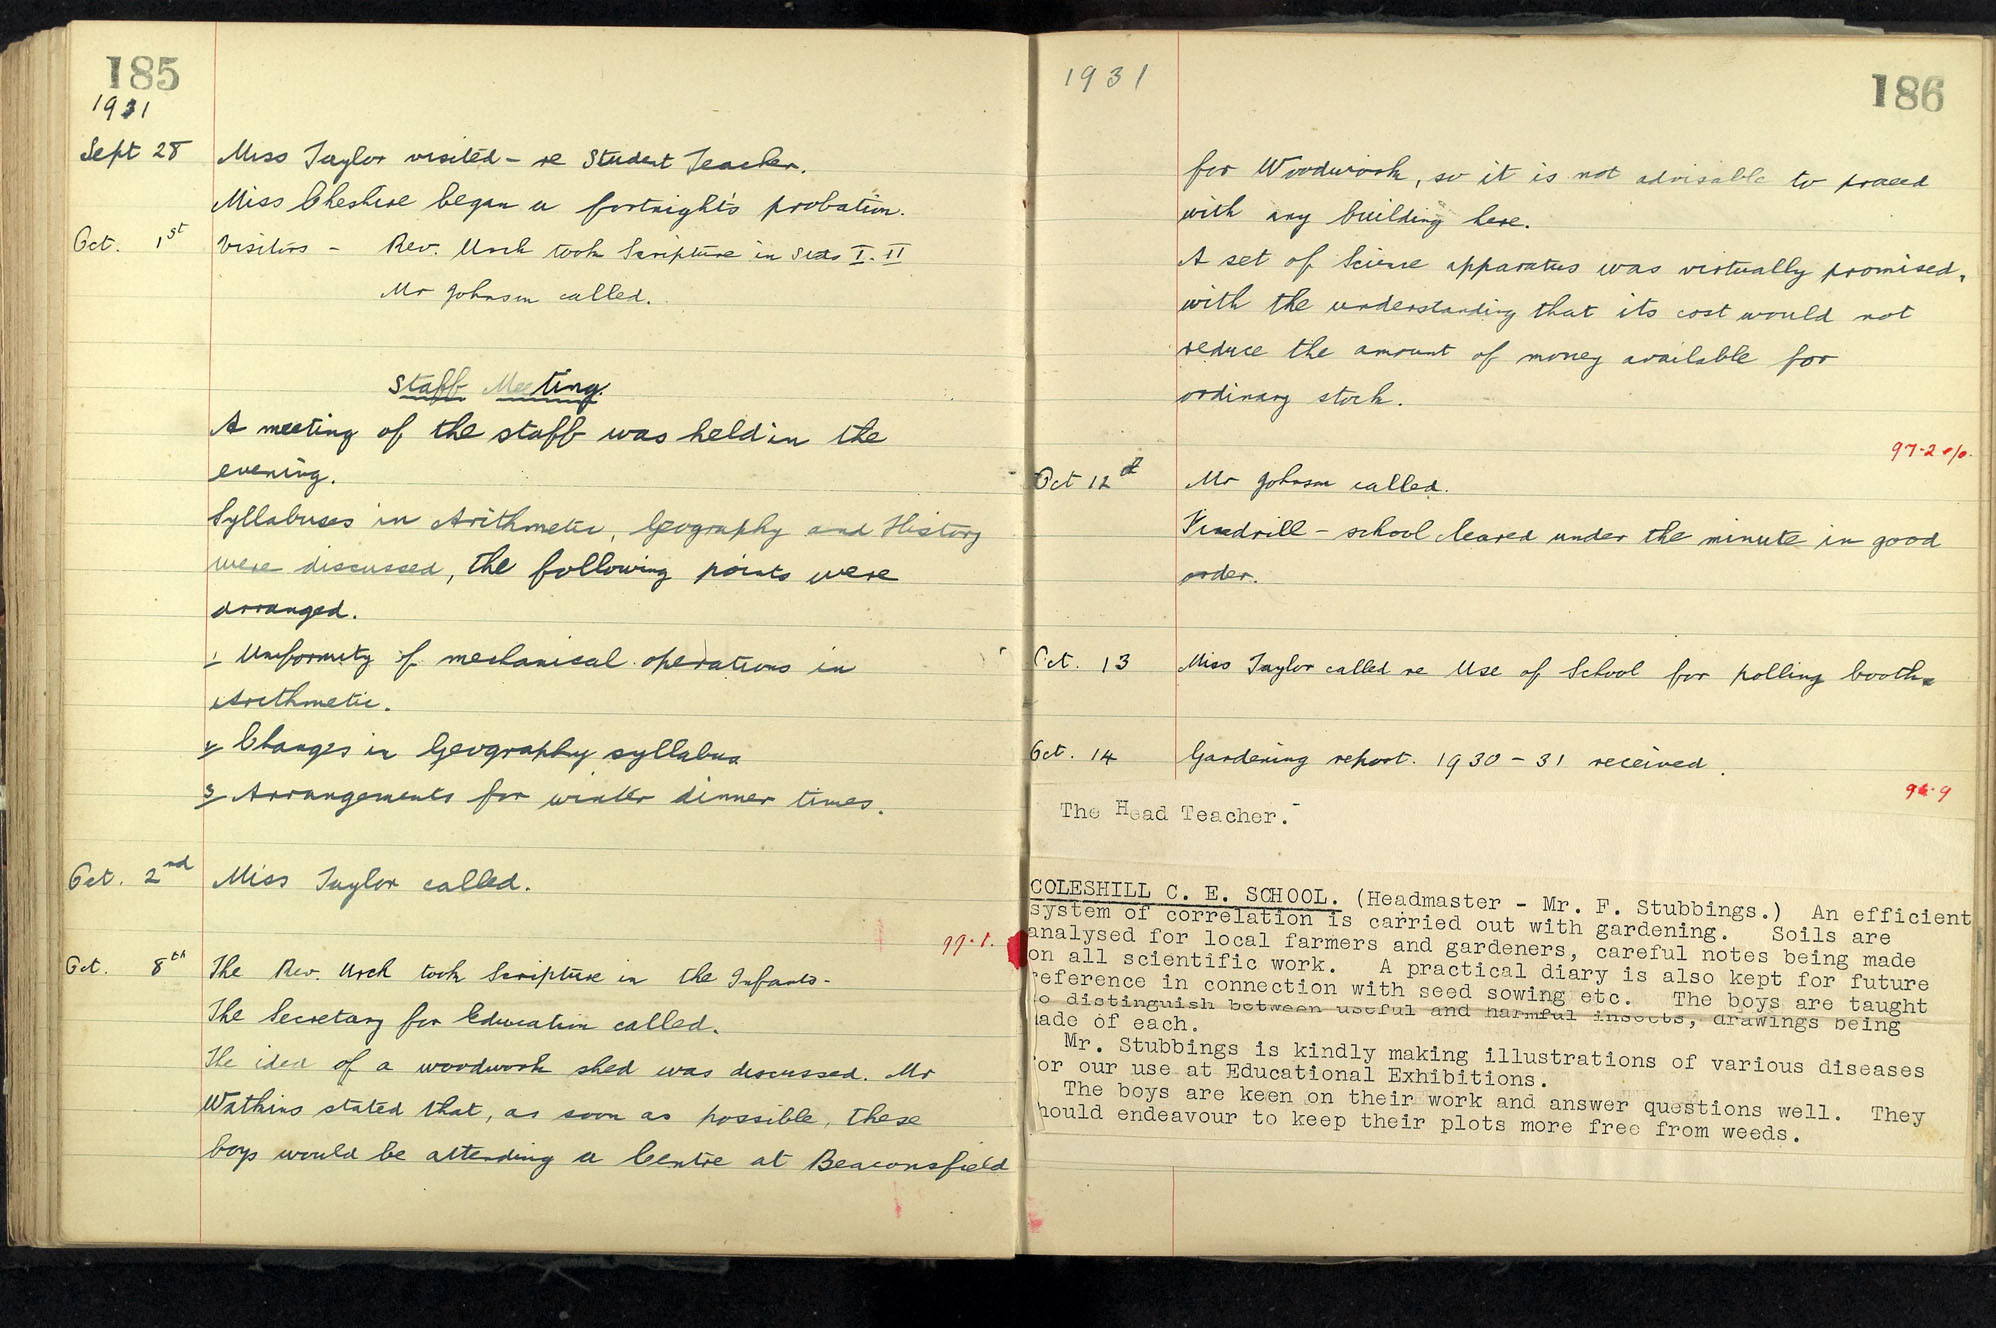 185
1931
Sept 28 Miss Taylor visited - re Student Teacher.
Miss Cheshire began a fortnight's probation.
Oct. 1st Visitors - Rev. Urch took Scripture in Stds I. II
Mr Johnson called.
Staff Meeting.
A meeting of the staff was held in the
evening.
Syllabuses in Arithmetic, Geography and History
were discussed, the following points were
arranged.
1 Uniformity of mechanical operations in
Arithmetic.
2 Changes in Geography syllabus
3 Arrangements for winter dinner times.
Oct. 2nd Miss Taylor called.
99.1.
Oct. 8th The Rev. Urch took Scripture in the Infants.
The Secretary for Education called.
The idea of a woodwork shed was discussed. Mr
Watkins stated that, as soon as possible, these
boys would be attending a Centre at Beaconsfield
1931
186
for Woodwork, so it is not advisable to proceed
with any building here.
A set of Science apparatus was virtually promised,
with the understanding that its cost would not
reduce the amount of money available for
ordinary stock.
97.2 %.
Oct 12 Mr Johnson called.
Firedrill - school cleared under the minute in good
order.
Oct. 13 Miss Taylor called re Use of School for polling booth.
Oct. 14 Gardening report. 1930 - 31 received.
96.9
The Head Teacher.
COLESHILL C. E. SCHOOL. (Headmaster - Mr. F. Stubbings.) An efficient
system of correlation is carried out with gardening. Soils are
analysed for local farmers and gardeners, careful notes being made
on all scientific work. A practical diary is also kept for future
reference in connection with seed sowing etc. The boys are taught
o distinguish between useful and harmful insects, drawings being
ade of each.
Mr. Stubbings is kindly making illustrations of various diseases
or our use at Educational Exhibitions.
The boys are keen on their work and answer questions well. They
hould endeavour to keep their plots more free from weeds.